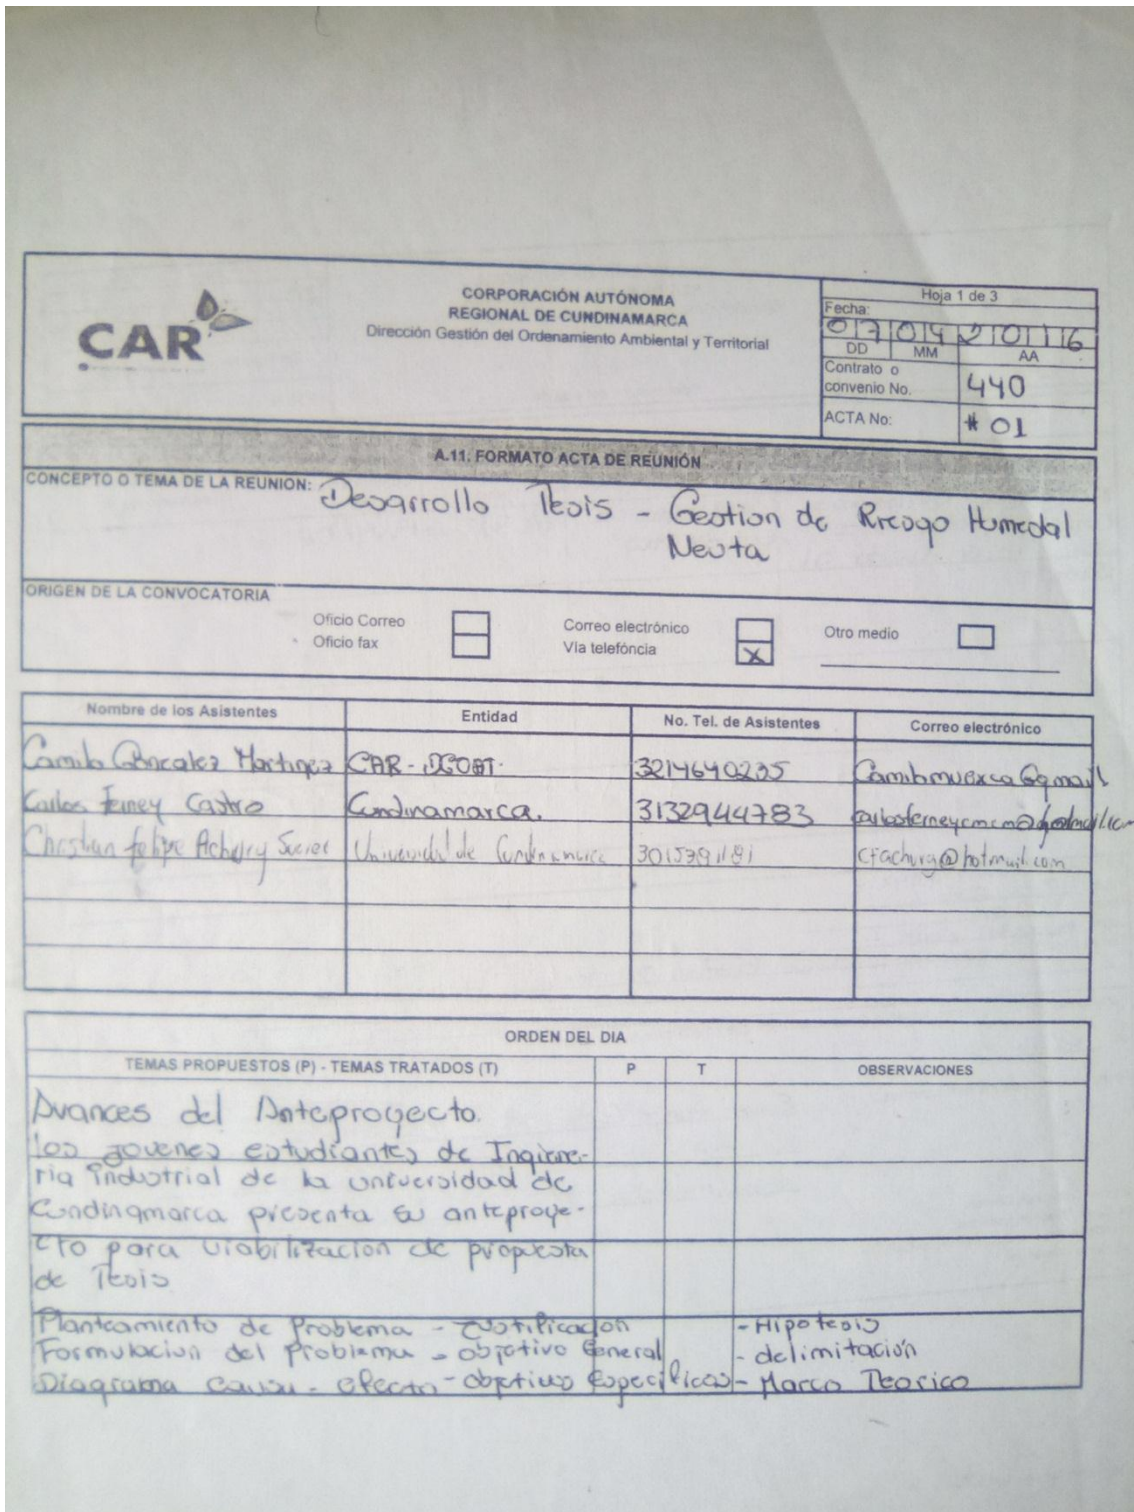 CAR
CORPORACIÓN AUTÓNOMA
REGIONAL DE CUNDINAMARCA
Dirección Gestión del Ordenamiento Ambiental y Territorial
Hoja 1 de 3
Fecha:
07 04 2016
DD MM AA
Contrato o
convenio No. 440
ACTA No: # 01
A.11. FORMATO ACTA DE REUNIÓN
CONCEPTO O TEMA DE LA REUNION: Desarrollo Tesis - Gestion de Riesgo Humedal
Neuta
ORIGEN DE LA CONVOCATORIA
Oficio Correo
Oficio fax
Correo electrónico
Vía telefóncia X
Otro medio
Nombre de los Asistentes Entidad No. Tel. de Asistentes Correo electrónico
Camilo Gonzalez Martinez CAR - DGOAT. 3214640235
Carlos Ferney Castro Cundinamarca. 3132944783
Christian Felipe Universidad de Cundinamarca @hotmail.com
ORDEN DEL DIA
TEMAS PROPUESTOS (P) - TEMAS TRATADOS (T) P T OBSERVACIONES
Avances del Anteproyecto.
los jovenes estudiantes de Ingienie-
ria industrial de la universidad de
Cundinamarca presenta su anteproye-
cto para viabilizacion de propuesta
de Tesis
Planteamiento de Problema - Justificacion - Hipotesis
Formulacion del Problema - objetivo General - delimitación
Diagrama causa - efecto - objetivos Especificos - Marco Teorico